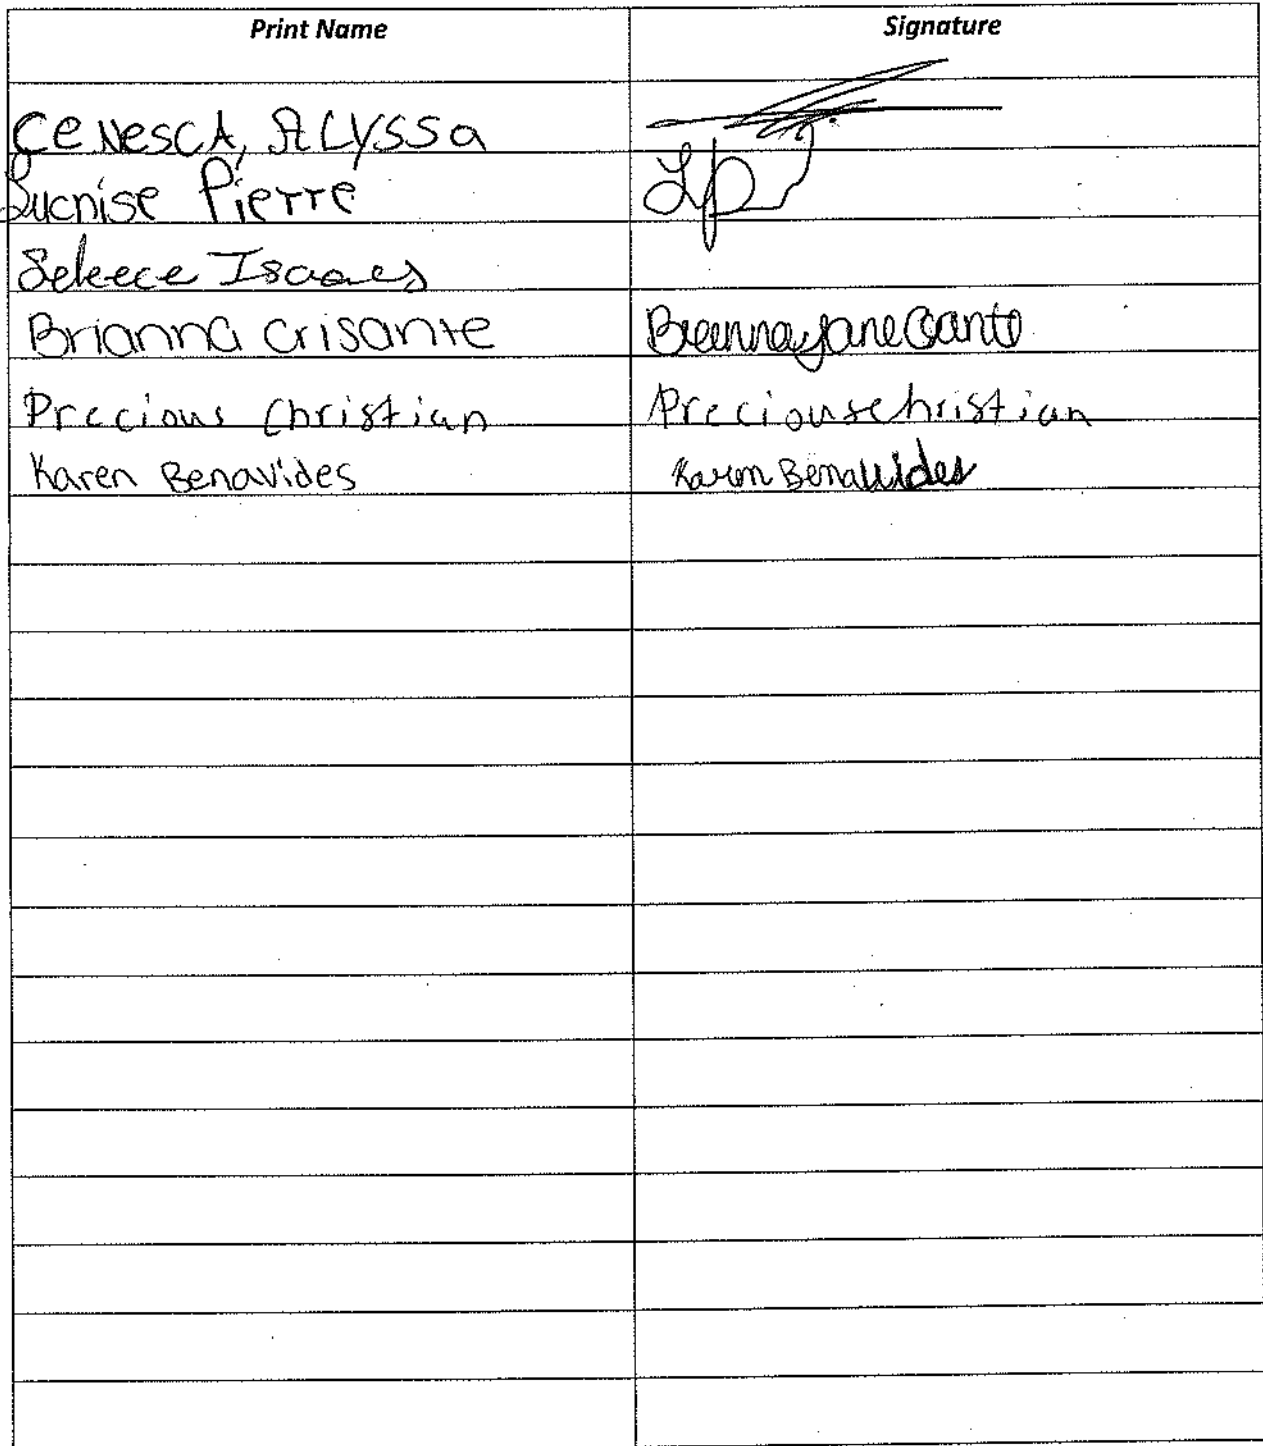 Print Name Signature
CENESCA, ALYSSA
Lucnise Pierre Lp
Isaacs
Brianna Crisante
Precious Christian Precious Christian
Karen Benavides Karen Benavides